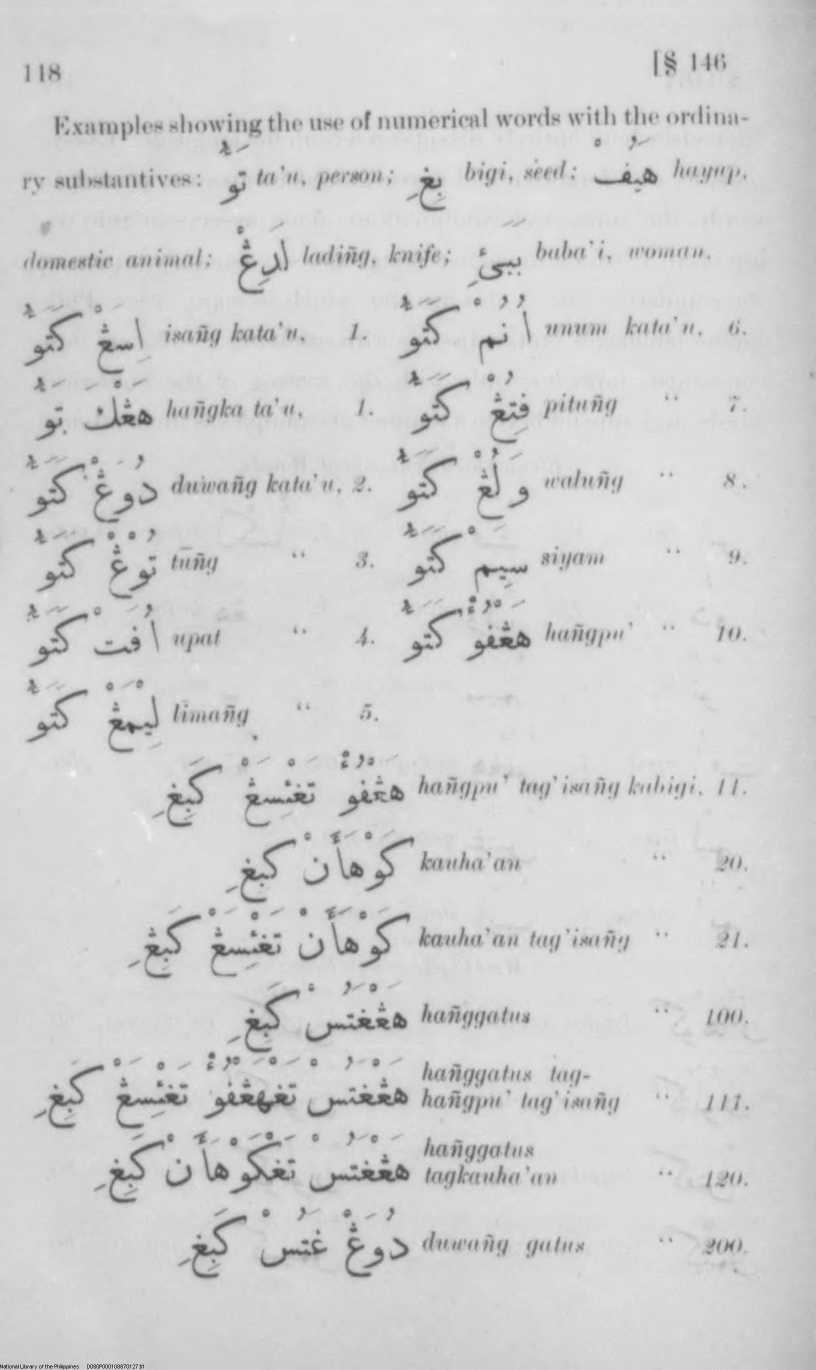 118 [§ 146
Examples showing the use of numerical words with the ordina-
ry substantives: تَوُ ta'u, person; بِغِ bigi, seed; هَيُفْ hayup,
domestic animal; لَدِڠْ ladiñg, knife; بَبَىِٔ baba'i, woman.
اِسَڠْ كَتَوُ isañg kata'u, 1. اُنُمْ كَتَوُ unum kata'u, 6.
هَڠْكَ تَوُ hañgka ta'u, 1. فِتُڠْ كَتَوُ pituñg “ 7.
دُوَڠْ كَتَوُ duwañg kata'u, 2. وَلُڠْ كَتَوُ waluñg “ 8.
تُوڠْ كَتَوُ tūñg “ 3. سِيَمْ كَتَوُ siyam “ 9.
اُفَتْ كَتَوُ upat “ 4. هَڠْفُوءْ كَتَوُ hañgpu' “ 10.
لِيمَڠْ كَتَوُ līmañg “ 5.
هَڠْفُوءْ تَغْئِسَڠْ كَبِغِ hañgpu' tag'isañg kabigi, 11.
كَوْهَأَنْ كَبِغِ kauha'an “ 20.
كَوْهَأَنْ تَغْئِسَڠْ كَبِغِ kauha'an tag'isañg “ 21.
هَڠْغَتُسْ كَبِغِ hañggatus “ 100.
هَڠْغَتُسْ تَغْهَڠْفُوءْ تَغْئِسَڠْ كَبِغِ hañggatus tag-
hañgpu' tag'isañg “ 111.
هَڠْغَتُسْ تَغْكَوْهَأَنْ كَبِغِ hañggatus
tagkauha'an “ 120.
دُوَڠْ غَتُسْ كَبِغِ duwañg gatus “ 200.
National Library of the Philippines